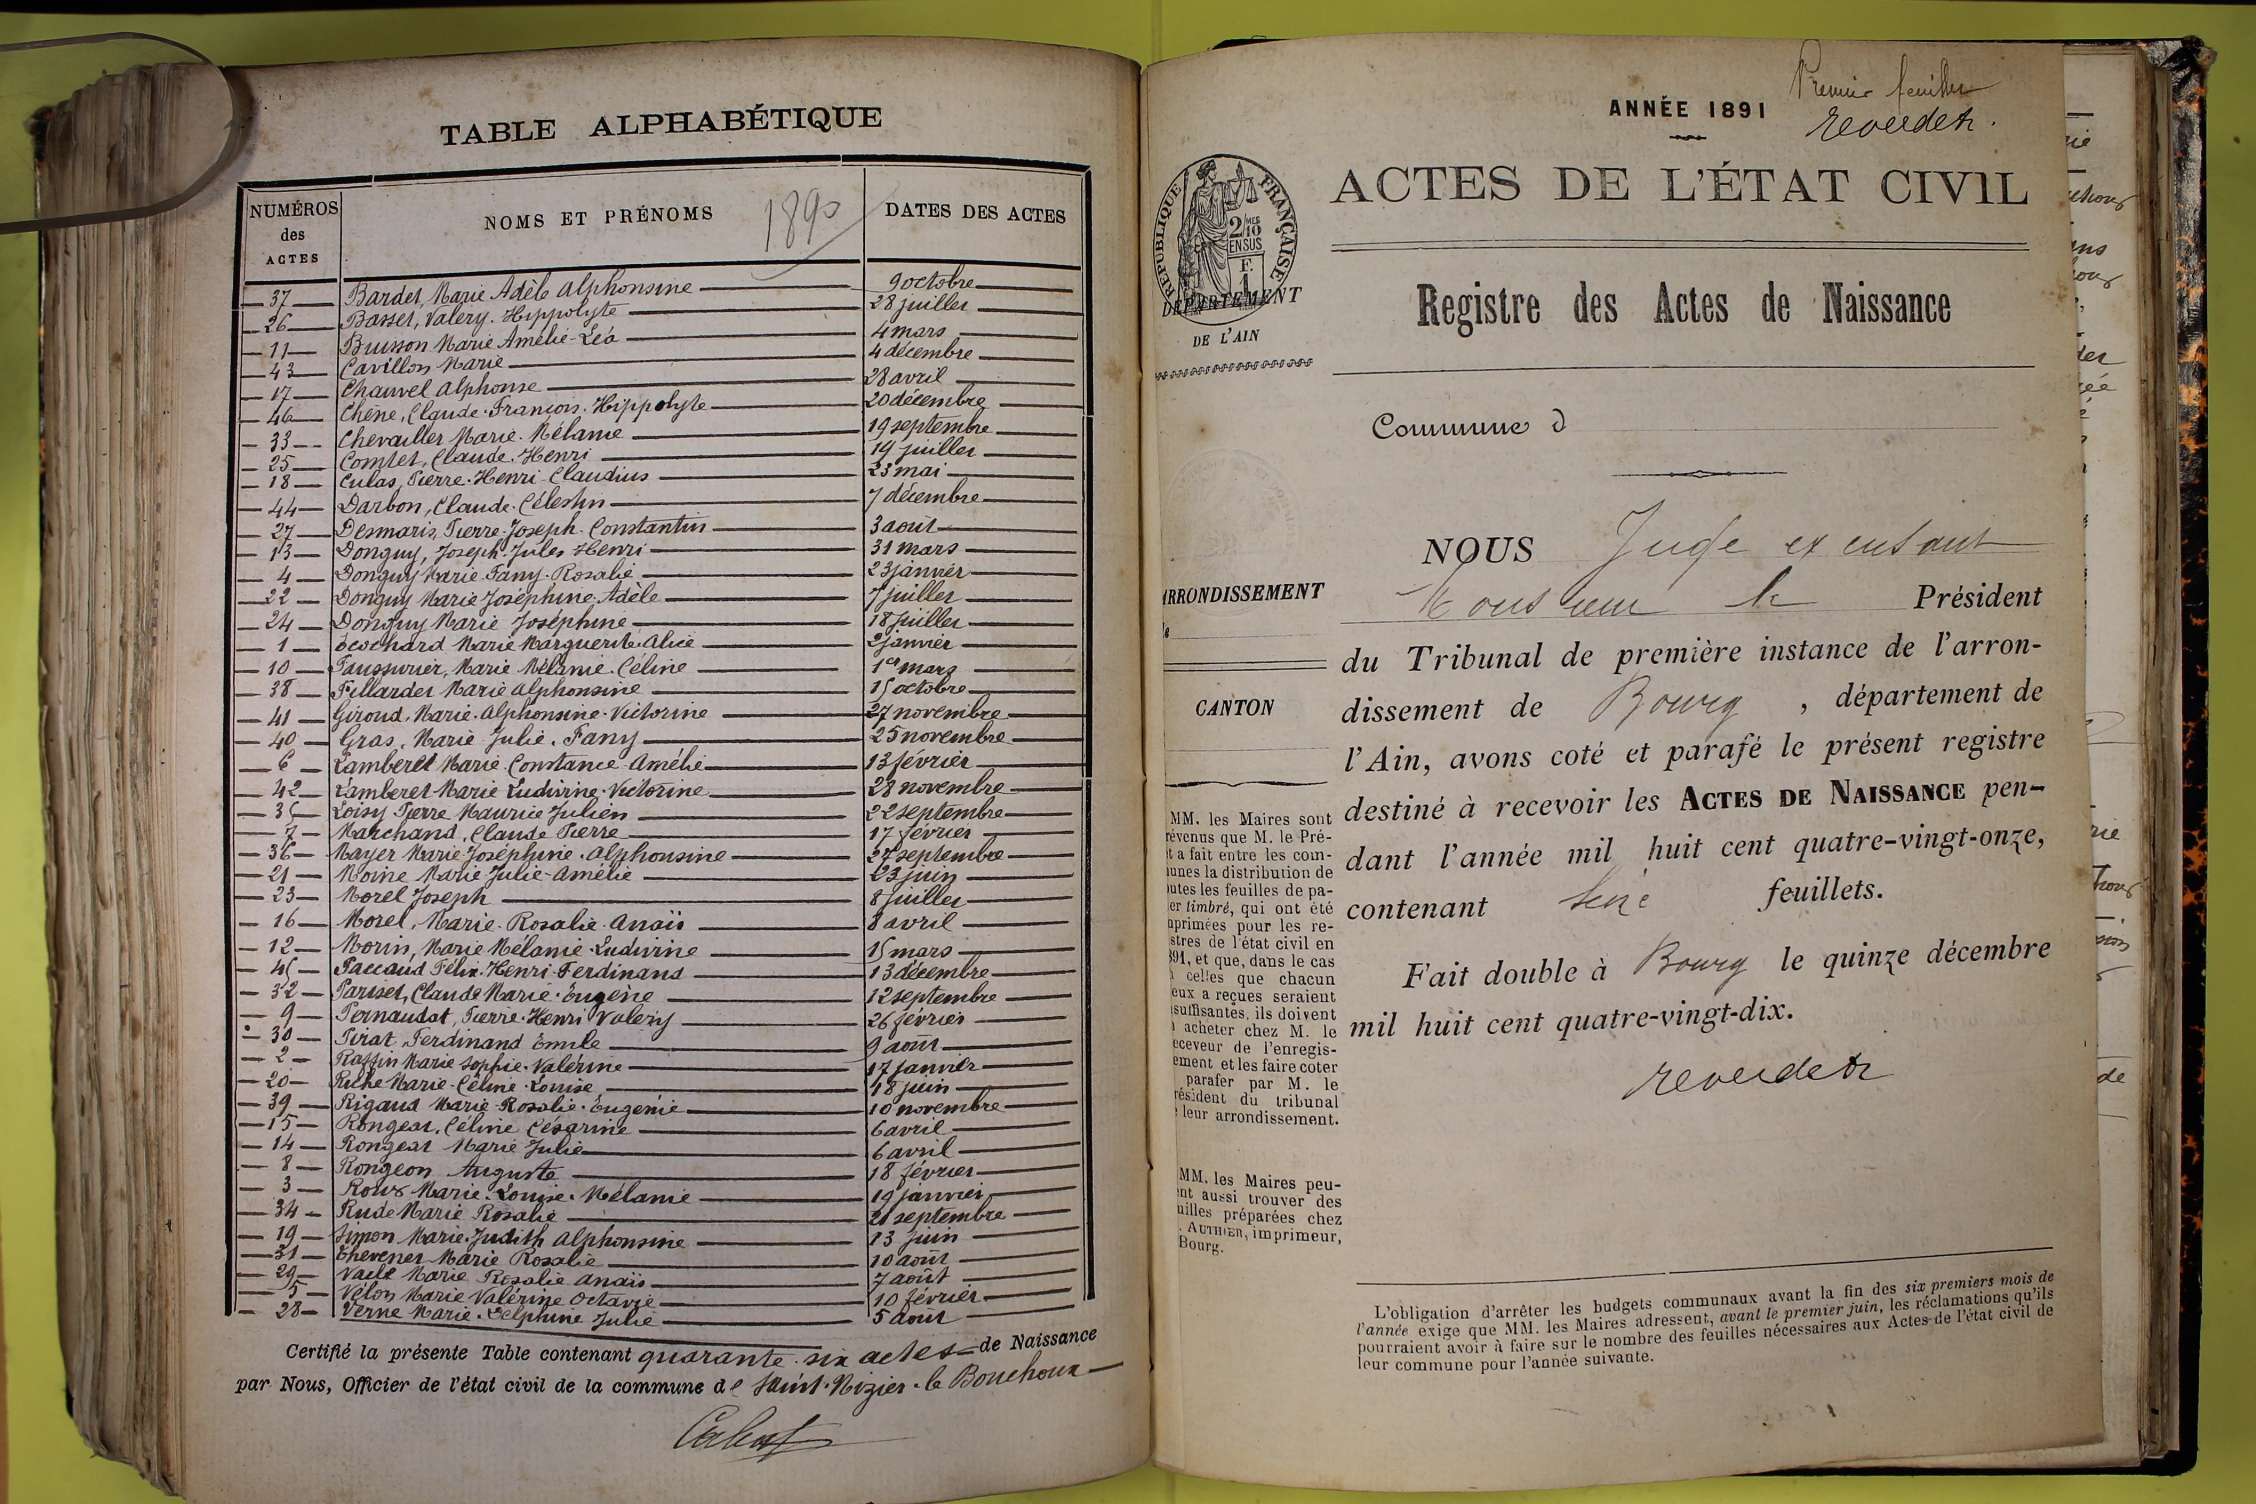 TABLE ALPHABÉTIQUE
NUMÉROS des ACTES
NOMS ET PRÉNOMS 1890
DATES DES ACTES
37 Bardet, Marie Adèle Alphonsine 9 octobre
26 Basset, Valery. Hippolyte 28 juillet
11 Buisson Marie Amélie-Léa 4 mars
43 Cavillon Marie 4 décembre
17 Chauvel Alphonse 28 avril
46 Chêne, Claude. François. Hippolyte 20 décembre
33 Chevailler Marie. Mélanie 19 septembre
25 Comtet, Claude. Henri 19 juillet
18 Culas, Pierre. Henri-Claudius 23 mai
44 Darbon, Claude. Célestin 7 décembre
27 Desmaris, Pierre-Joseph. Constantin 3 août
13 Donguy, Joseph. Jules Henri 31 mars
4 Donguy Marie. Fany. Rosalie 23 janvier
22 Donguy Marie Joséphine. Adèle 7 juillet
24 Donguy Marie Joséphine 18 juillet
1 Écochard Marie Marguerite. Alice 2 janvier
10 Faussurier, Marie Mélanie. Céline 1er mars
38 Fillardet Marie Alphonsine 15 octobre
41 Giroud. Marie. Alphonsine. Victorine 27 novembre
40 Gras. Marie Julie. Fany 25 novembre
6 Lamberet Marie Constance Amélie 13 février
42 Lamberet Marie Ludivine. Victorine 28 novembre
35 Loisy Pierre Maurice Julien 22 septembre
7 Marchand, Claude Pierre 17 février
36 Mayer Marie Joséphine. Alphonsine 27 septembre
21 Moine Marie Julie-Amélie 23 juin
23 Morel Joseph 8 juillet
16 Morel, Marie. Rosalie. Anaïs 8 avril
12 Morin, Marie Mélanie. Ludivine 15 mars
45 Paccaud Félix. Henri-Ferdinand 13 décembre
32 Pariset, Claude Marie. Eugène 12 septembre
9 Pernaudat, Pierre. Henri Valery 26 février
30 Pirat Ferdinand Émile 9 août
2 Raffin Marie Sophie. Valérine 17 janvier
20 Riche Marie. Céline. Louise 18 juin
39 Rigaud Marie Rosalie. Eugénie 10 novembre
15 Rongeat, Céline Césarine 6 avril
14 Rongeat Marie Julie 6 avril
8 Rongeon Auguste 18 février
3 Roux Marie. Louise. Mélanie 19 janvier
34 Rude Marie Rosalie 21 septembre
19 Simon Marie. Judith Alphonsine 13 juin
31 Thevenet Marie Rosalie 10 août
29 Vaile Marie Rosalie Anaïs 7 août
5 Vélon Marie Valérine Octavie 10 février
28 Verne Marie. Delphine Julie 5 août
Certifié la présente Table contenant quarante-six actes de Naissance
par Nous, Officier de l'état civil de la commune de Saint-Nizier-le Bouchoux
Premier feuillet
Reverdetz.
ANNÉE 1891
ACTES DE L'ÉTAT CIVIL
RÉPUBLIQUE FRANÇAISE
2/10 EN SUS
F. 1
DÉPARTEMENT
DE L'AIN
Registre des Actes de Naissance
Commune d
NOUS Juge exensant
Monsieur le Président
du Tribunal de première instance de l'arron-
dissement de Bourg, département de
l'Ain, avons coté et parafé le présent registre
destiné à recevoir les ACTES DE NAISSANCE pen-
dant l'année mil huit cent quatre-vingt-onze,
contenant seize feuillets.
Fait double à Bourg le quinze décembre
mil huit cent quatre-vingt-dix.
Reverdetz
ARRONDISSEMENT
CANTON
MM. les Maires sont
révenus que M. le Pré-
t a fait entre les com-
unes la distribution de
outes les feuilles de pa-
er timbré, qui ont été
mprimées pour les re-
stres de l'état civil en
891, et que, dans le cas
celles que chacun
eux a reçues seraient
suffisantes, ils doivent
acheter chez M. le
eceveur de l'enregis-
ement et les faire coter
parafer par M. le
résident du tribunal
leur arrondissement.
MM. les Maires peu-
ent aussi trouver des
uilles préparées chez
. AUTHIER, imprimeur,
Bourg.
L'obligation d'arrêter les budgets communaux avant la fin des six premiers mois de
l'année exige que MM. les Maires adressent, avant le premier juin, les réclamations qu'ils
pourraient avoir à faire sur le nombre des feuilles nécessaires aux Actes de l'état civil de
leur commune pour l'année suivante.